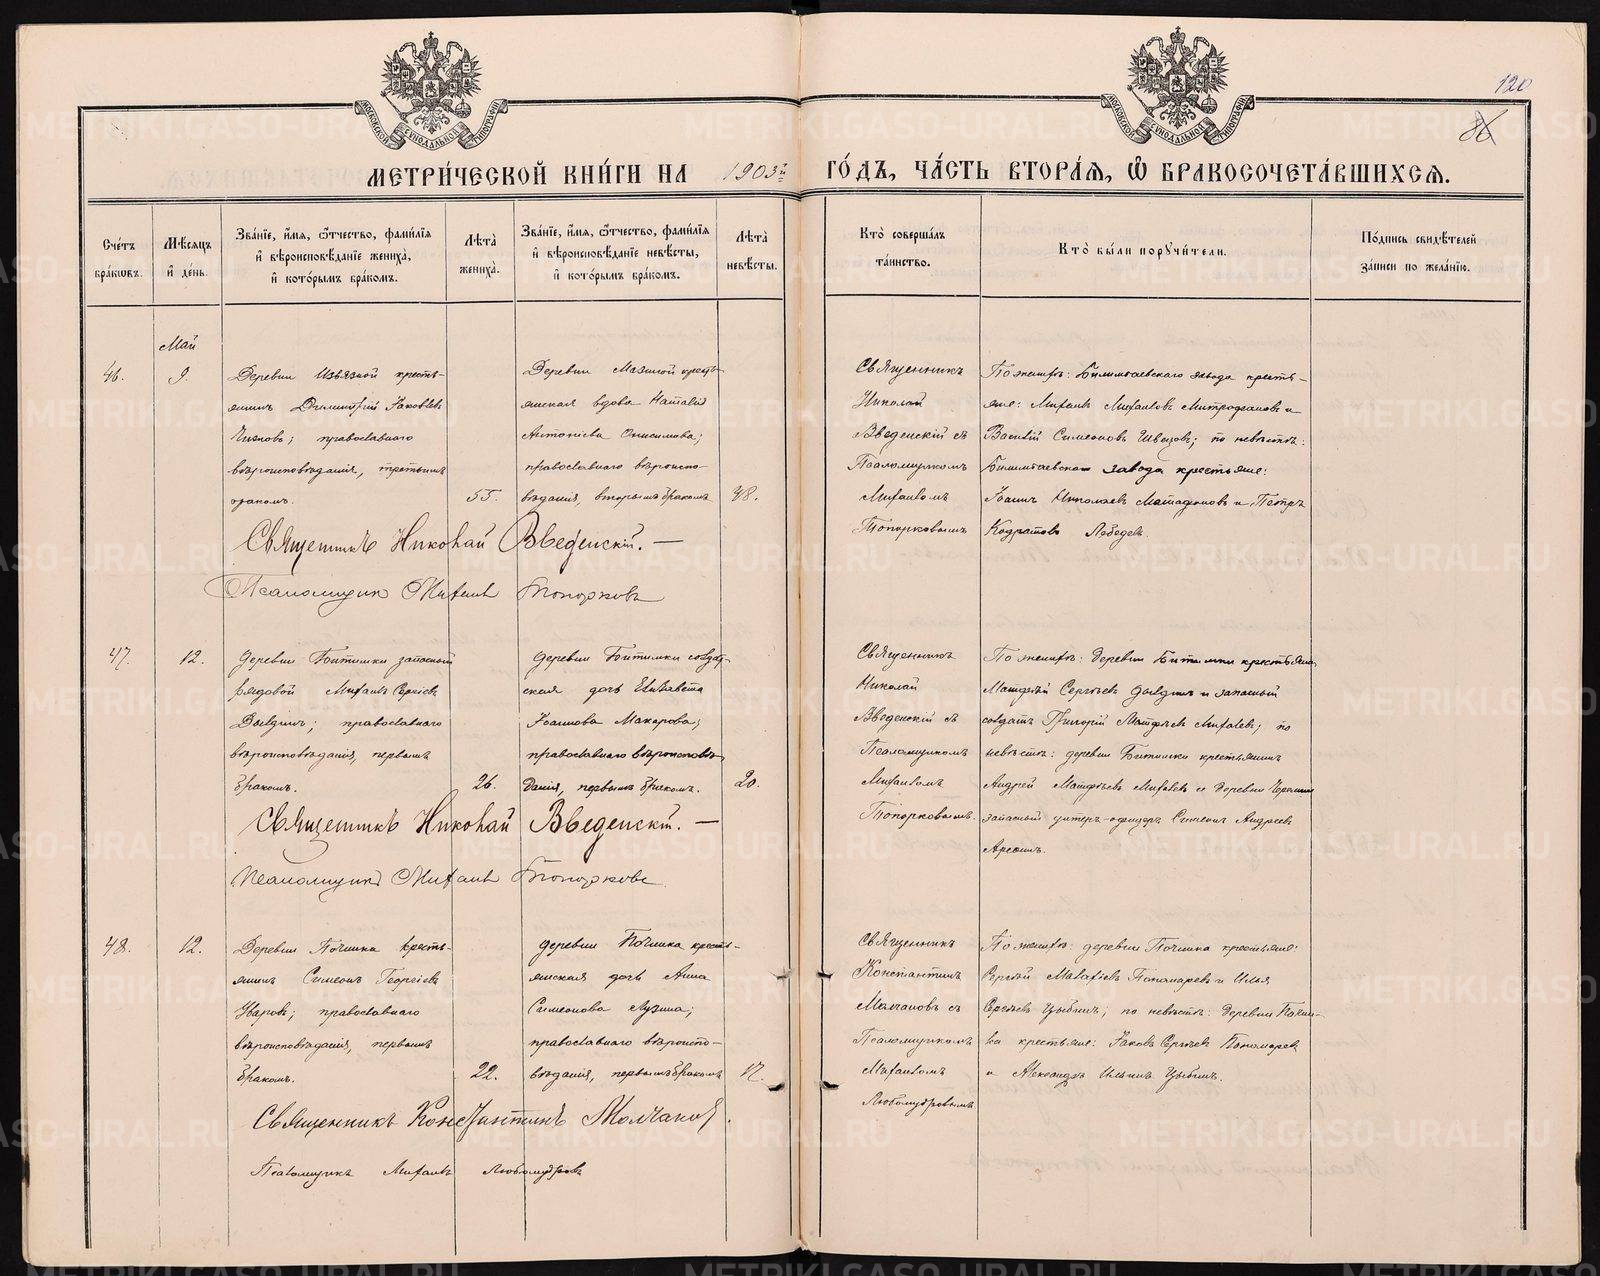 МОСКОВСКОЙ СѴНОДАЛЬНОЙ ТИПОГРАФІИ
МОСКОВСКОЙ СѴНОДАЛЬНОЙ ТИПОГРАФІИ
120
86
МЕТРИ́ЧЕСКОЙ КНИ́ГИ НА 1903й ГО́ДЪ, ЧА́СТЬ ВТОРА́Я, Ѡ҆ БРАКОСОЧЕТА́ВШИХСЯ.
Сче́тъ бра́кѡвъ.
Мѣ́сяцъ и҆ де́нь.
Зва́нїе, и҆́мя, ѻ҆́тчество, фами́лїя и҆ вѣроисповѣ́данїе жениха̀, и҆ кото́рымъ бра́комъ.
Лѣ́та жениха̀.
Зва́нїе, и҆́мя, ѻ҆́тчество, фами́лїя и҆ вѣроисповѣ́данїе невѣ́сты, и҆ кото́рымъ бра́комъ.
Лѣ́та невѣ́сты.
Кто̀ соверша́лъ та́инство.
Кто̀ бы́ли порꙋчи́тели.
По́дпись свидѣ́телей за́писи по жела́нїю.
Май
46.
9.
Деревни Извязной кресть-
янинъ Димитрій Іаковлев
Чижовъ; православнаго
вѣроисповѣданія, третьимъ
бракомъ.
55.
Деревни Мазиной кресть-
янская вдова Наталія
Антоніева Онисимова;
православнаго вѣроиспо-
вѣданія, вторымъ бракомъ
48.
Священникъ
Николай
Введенскій съ
Псаломщикомъ
Михаиломъ
Топорковымъ
По женихѣ: Билимбаевскаго завода кресть-
яне: Михаилъ Михаиловъ Митрофановъ и
Василій Симеоновъ Швецовъ; по невѣстѣ:
Билимбаевскаго завода крестьяне:
Іоаннъ Николаевъ Матафоновъ и Петръ
Кодратовъ Лебедевъ.
Священникъ Николай Введенскій. —
Псаломщик Михаилъ Топорковъ
47.
12.
Деревни Битимки запасный
рядовой Михаилъ Сергіевъ
православнаго
вѣроисповѣданія, первымъ
бракомъ.
26.
Деревни Битимки солдат-
ская дочь Елизавета
Іоаннова Макарова;
православнаго вѣроисповѣ-
данія, первымъ бракомъ.
20.
Священникъ
Николай
Введенскій съ
Псаломщикомъ
Михаиломъ
Топорковымъ.
По женихѣ: деревни Битимки крестьянинъ
Матфій Сергѣевъ и запасный
солдатъ Григорій Матфѣевъ Михалевъ; по
невѣстѣ: деревни Битимки крестьянинъ
Андрей Матфѣевъ Михалевъ и деревни
запасный унтеръ-офицеръ Симеонъ Андреевъ
Арефинъ.
Священникъ Николай Введенскій. —
Псаломщикъ Михаилъ Топорковъ
48.
12.
Деревни Починка кресть-
янинъ Симеонъ Георгіевъ
Уваровъ; православнаго
вѣроисповѣданія, первымъ
бракомъ.
22.
Деревни Починка кресть-
янская дочь Анна
Симеонова Лузина;
православнаго вѣроиспо-
вѣданія, первымъ бракомъ
17.
Священникъ
Константинъ
Молчановъ съ
Псаломщикомъ
Михаиломъ
Любомудровымъ
По женихѣ: деревни Починка крестьяне:
Сергѣй Малафіевъ Пономаревъ и Илья
Сергѣевъ Цыбинъ; по невѣстѣ: деревни Почин-
ка крестьяне: Іаковъ Сергѣевъ Пономаревъ
и Александръ Ильинъ Цыбинъ.
Священникъ Константинъ Молчановъ.
Псаломщикъ Михаилъ Любомудровъ
METRIKI.GASO-URAL.RU